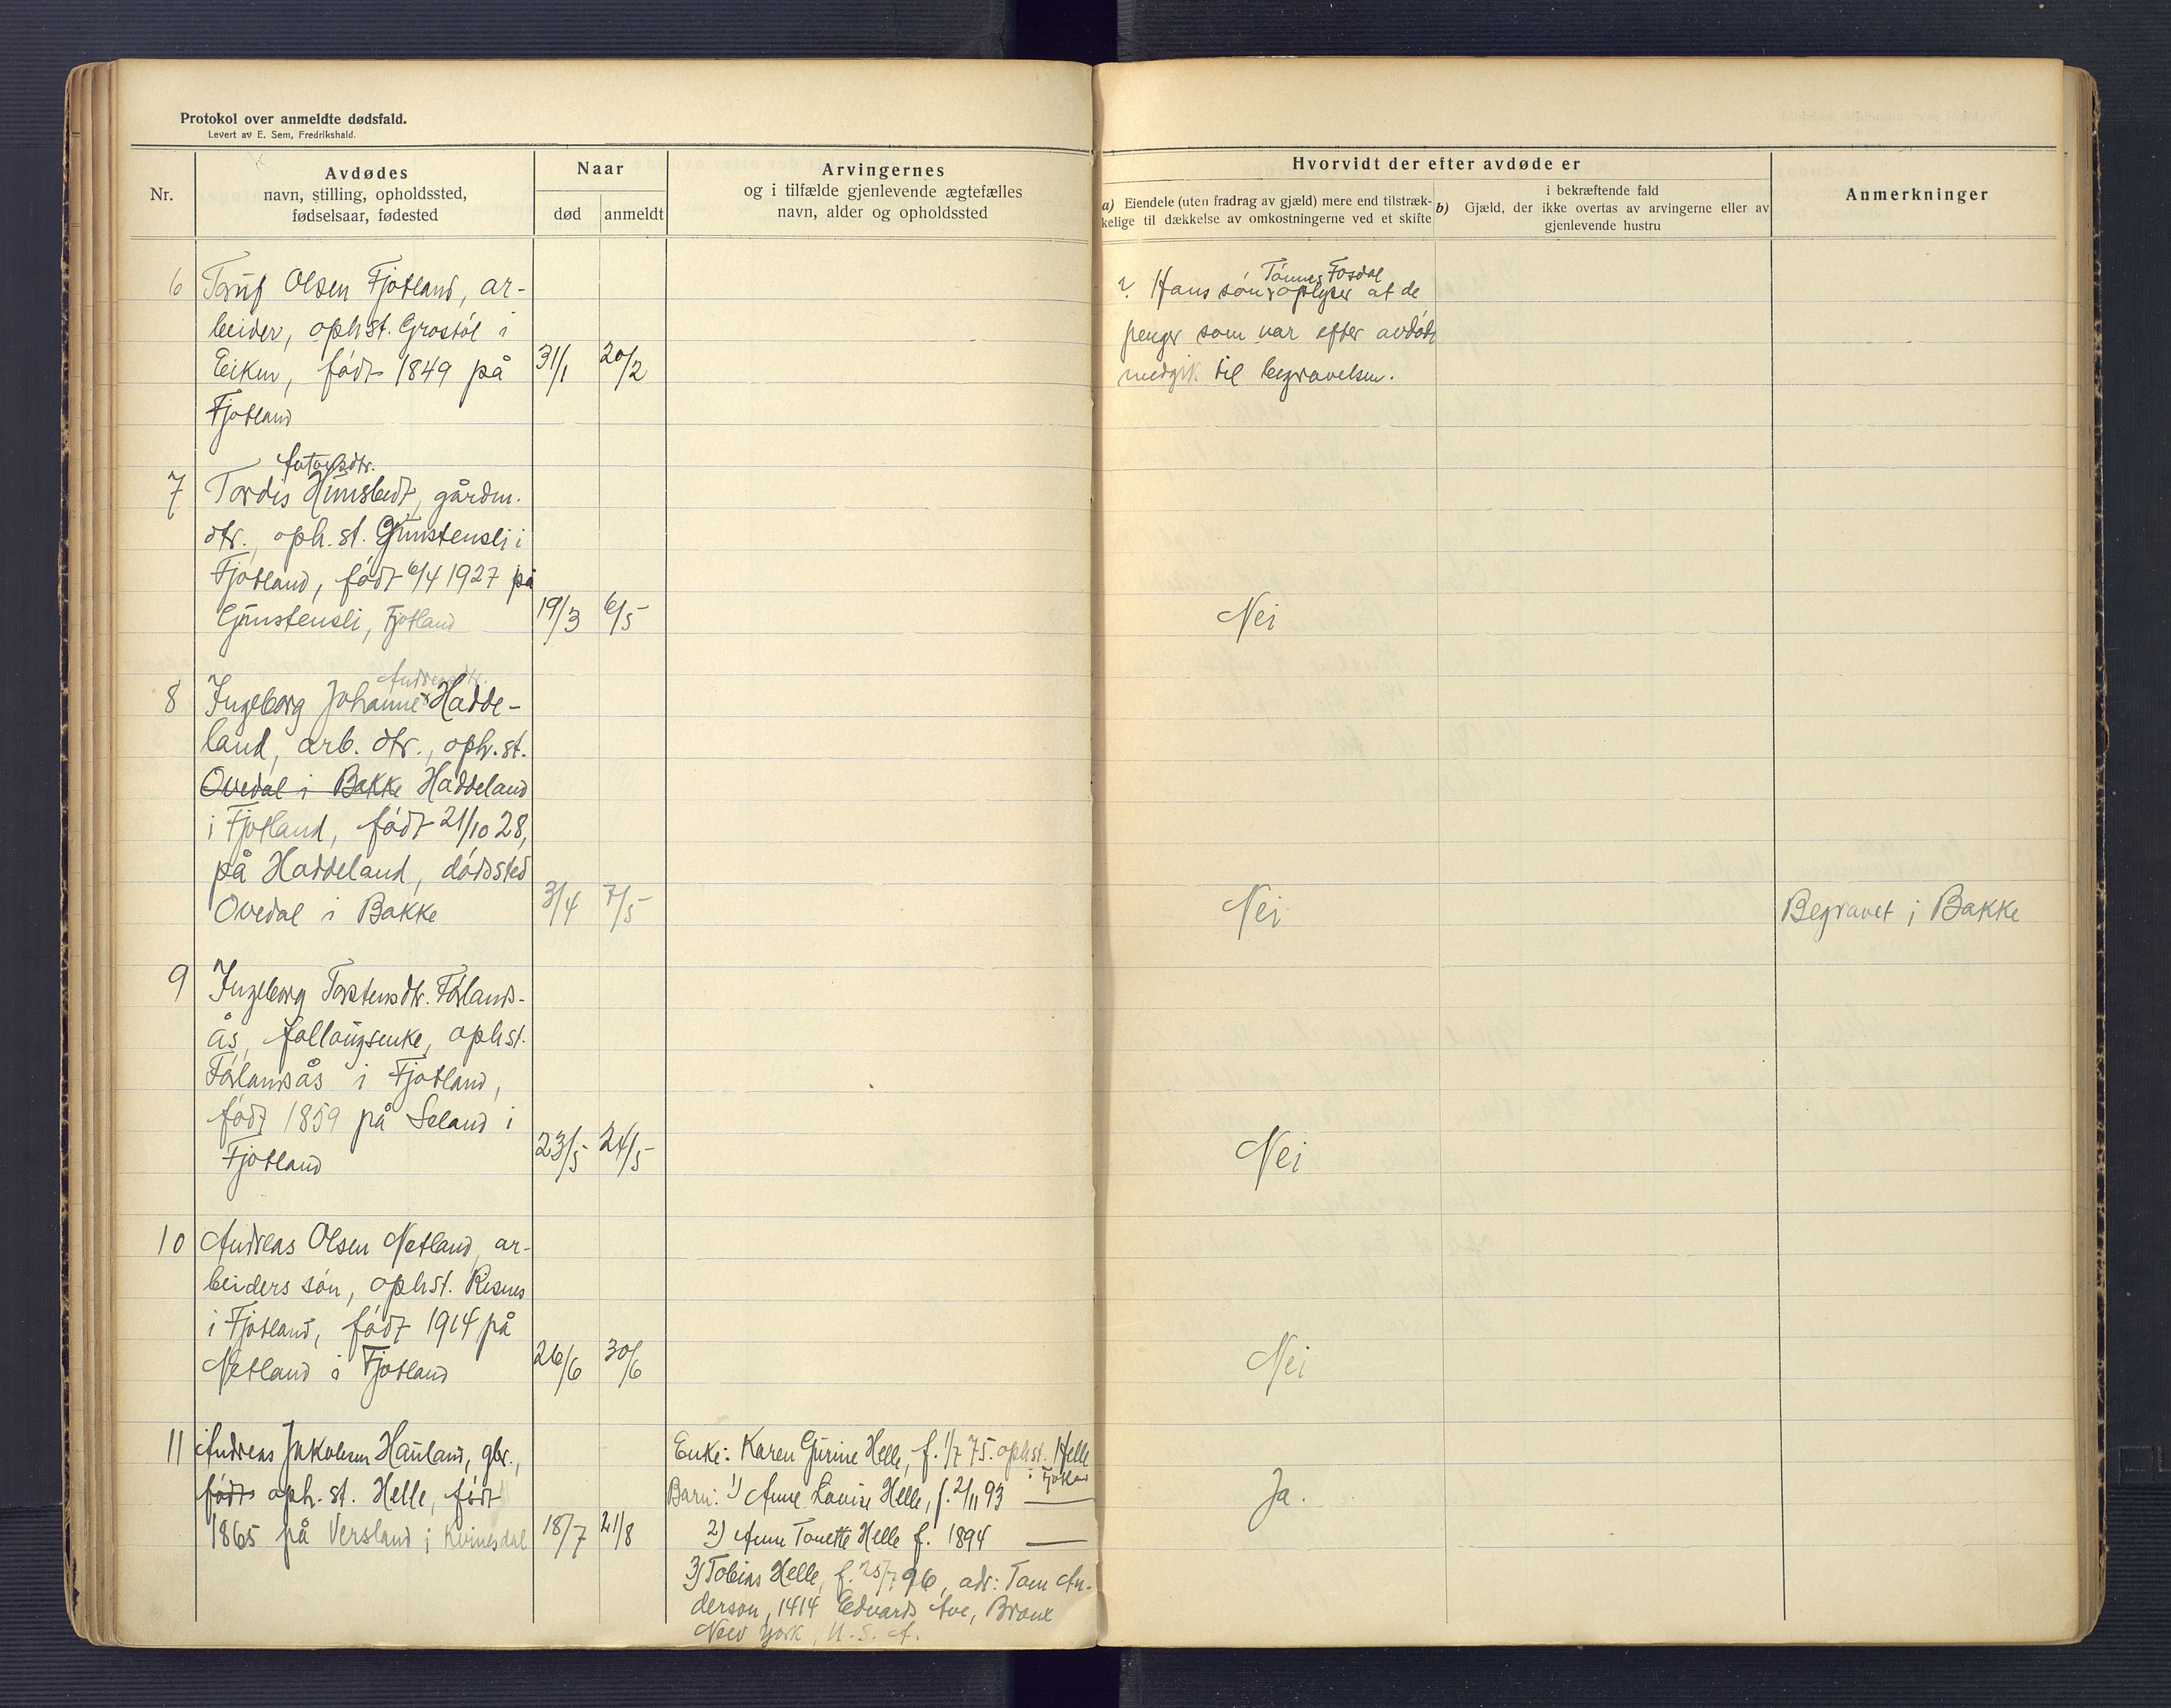 Protokol over anmeldte dødsfald.
Levert av E. Sem, Fredrikshald.
Nr.
Avdødes
navn, stilling, opholdssted,
fødselsaar, fødested
Naar
død
anmeldt
Arvingernes
og i tilfælde gjenlevende ægtefælles
navn, alder og opholdssted
Hvorvidt der efter avdøde er
a) Eiendele (uten fradrag av gjæld) mere end tilstræk-
kelige til dækkelse av omkostningerne ved et skifte
i bekræftende fald
b) Gjæld, der ikke overtas av arvingerne eller av
gjenlevende hustru
Anmerkninger
6 Olsen Fjotland, ar-
beider, ophst. Grostøl i
Eiken, født 1849 på
Fjotland
31/1 20/2
? Hans søn Tønnes Fosdal oplyser at de
penger som var efter avdøde
medgik til begravelsen.
7 Tordis Antonsdtr. Hunsbedt, gårdm.
dtr., oph.st. Gunstensli i
Fjotland, født 6/4 1927 på
Gunstensli, Fjotland
19/3 6/5
Nei
8 Ingeborg Johanne Andreasdtr. Hadde-
land, arb. dtr., oph.st.
Ovedal i Bakke Haddeland
i Fjotland, født 21/10 28,
på Haddeland, dødssted
Ovedal i Bakke
3/4 7/5
Nei
Begravet i Bakke
9 Ingeborg Torstensdtr. Førlands-
ås, follaugsenke, ophst.
Førlandsås i Fjotland,
født 1859 på Seland i
Fjotland
23/5 24/5
Nei
10 Andreas Olsen Netland, ar-
beiders søn, ophst. Risnes
i Fjotland, født 1914 på
Netland i Fjotland
26/6 30/6
Nei
11 Andreas Jakobsen Hauland, gbr.,
født oph.st. Helle, født
1865 på Versland i Kvinesdal
18/7 21/8
Enke: Karen Gurine Helle, f. 1/7 75. ophst. Helle
i Fjotland
Barn: 1) Anne Lovise Helle, f. 2/11 93 —
2) Anne Tonette Helle f. 1894 —
3) Tobias Helle, f. 25/7 96, adr: Tom An-
derson, 1414 Edwards Ave, Bronx
New York, U.S.A.
Ja.